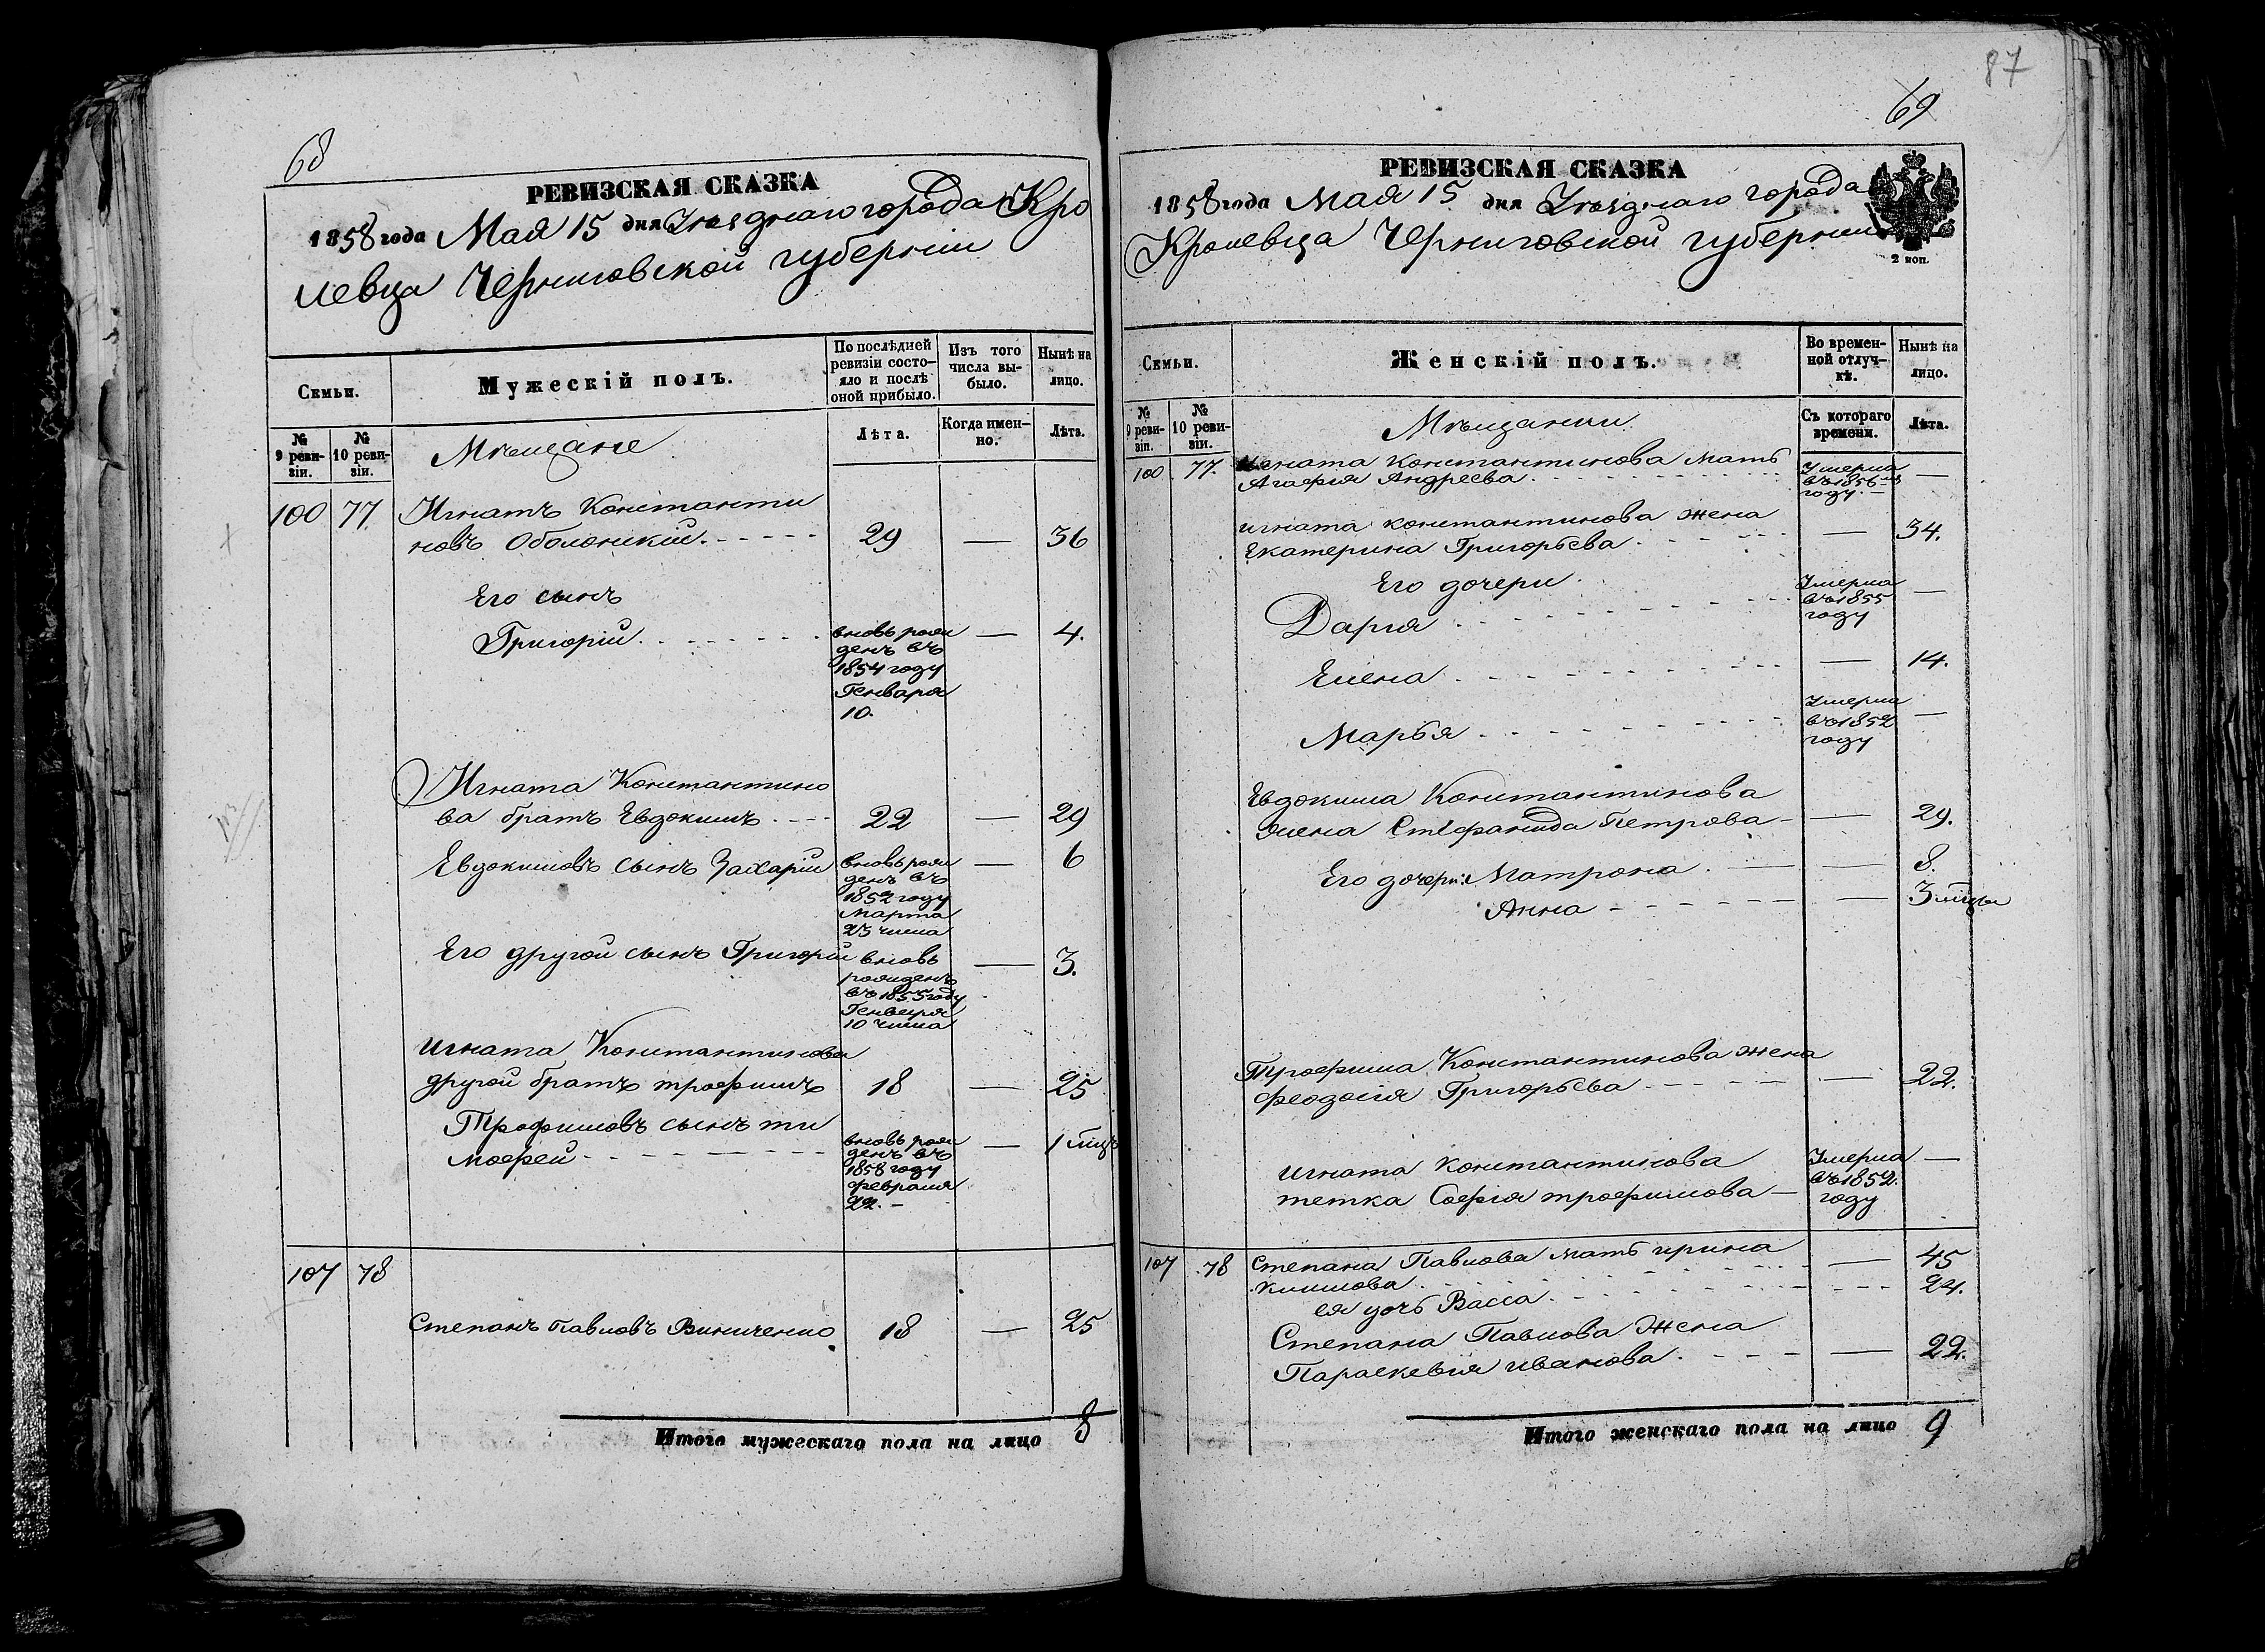 68
РЕВИЗСКАЯ СКАЗКА
1858 года Мая 15 дня Уѣзднаго города Кро
левца Черниговской губерніи
Семьи.
Мужескій полъ.
По послѣдней ревизіи состо-
яло и послѣ оной прибыло.
Изъ того числа вы-
было.
Нынѣ на лицо.
№ 9 реви-
зіи.
№ 10 реви-
зіи.
Мѣщане
Лѣта.
Когда имен-
но.
Лѣта.
100 77 Игнатъ Константи
новъ Оболонскій. 29 — 36
Его сынъ
Григорій. вновь рож — 4.
денъ въ
1854 году
Генваря
10.
Игната Константино
ва братъ Евдокимъ 22 — 29
Евдокимовъ сынъ Захарій вновь рож — 6
денъ въ
1852 году
Марта
23 числа
Его другой сынъ Григорій вновь — 3.
рожденъ
въ 1855 году
Генваря
10 числа
Игната Константинова
другой братъ трофимъ 18 — 25
Трофимовъ сынъ ти
мофей вновь рож — 1 мцъ
денъ въ
1858 году
февраля
22. —
107 78
Степанъ Павловъ Виниченко 18 — 25
Итого мужескаго пола на лицо 8
87
69
РЕВИЗСКАЯ СКАЗКА
1858 года Мая 15 дня Уѣзднаго города
Кролевца Черниговской губерніи
2 коп.
Семьи.
Женскій полъ.
Во времен-
ной отлуч-
кѣ.
Нынѣ на лицо.
№ 9 реви-
зіи.
№ 10 реви-
зіи.
Мѣщанки
Съ котораго времени.
Лѣта.
100 77. Игната Константинова мать Умерла
Агафія Андреева. въ 1856 —
году. —
игната константинова жена
Екатерина Григорьева — 34.
Его дочери Умерла
Дарія въ 1855 —
году
Елена — 14.
Умерла
Марья въ 1852 —
году
Евдокима Константинова
жена Стефанида Петрова — 29.
Его дочери: Матрона — 8.
Анна — 3 мцы
Трофима Константинова жена
феодосія Григорьева — 22.
игната константинова Умерла —
тетка Софія трофимова въ 1852.
году
107 78 Степана Павлова мать ирина — 45
климова
ея дочь Васса 24.
Степана Павлова Жена
Параскевія иванова. — 22.
Итого женскаго пола на лицо 9